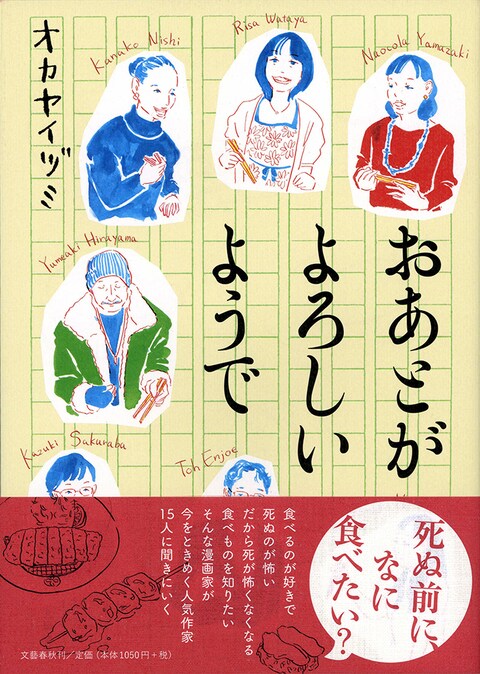 オカヤイヅミ
Kanako Nishi
Risa Wataya
Naocola Yamazaki
おあとが
よろしい
ようで
Yumeaki Hirayama
Kazuki Sakuraba
Toh Enjoe
死ぬ前に、
なに
食べたい？
食べるのが好きで
死ぬのが怖い
だから死が怖くなくなる
食べものを知りたい
そんな漫画家が
今をときめく人気作家
15人に聞きにいく
文藝春秋刊／定価（本体1050円＋税）